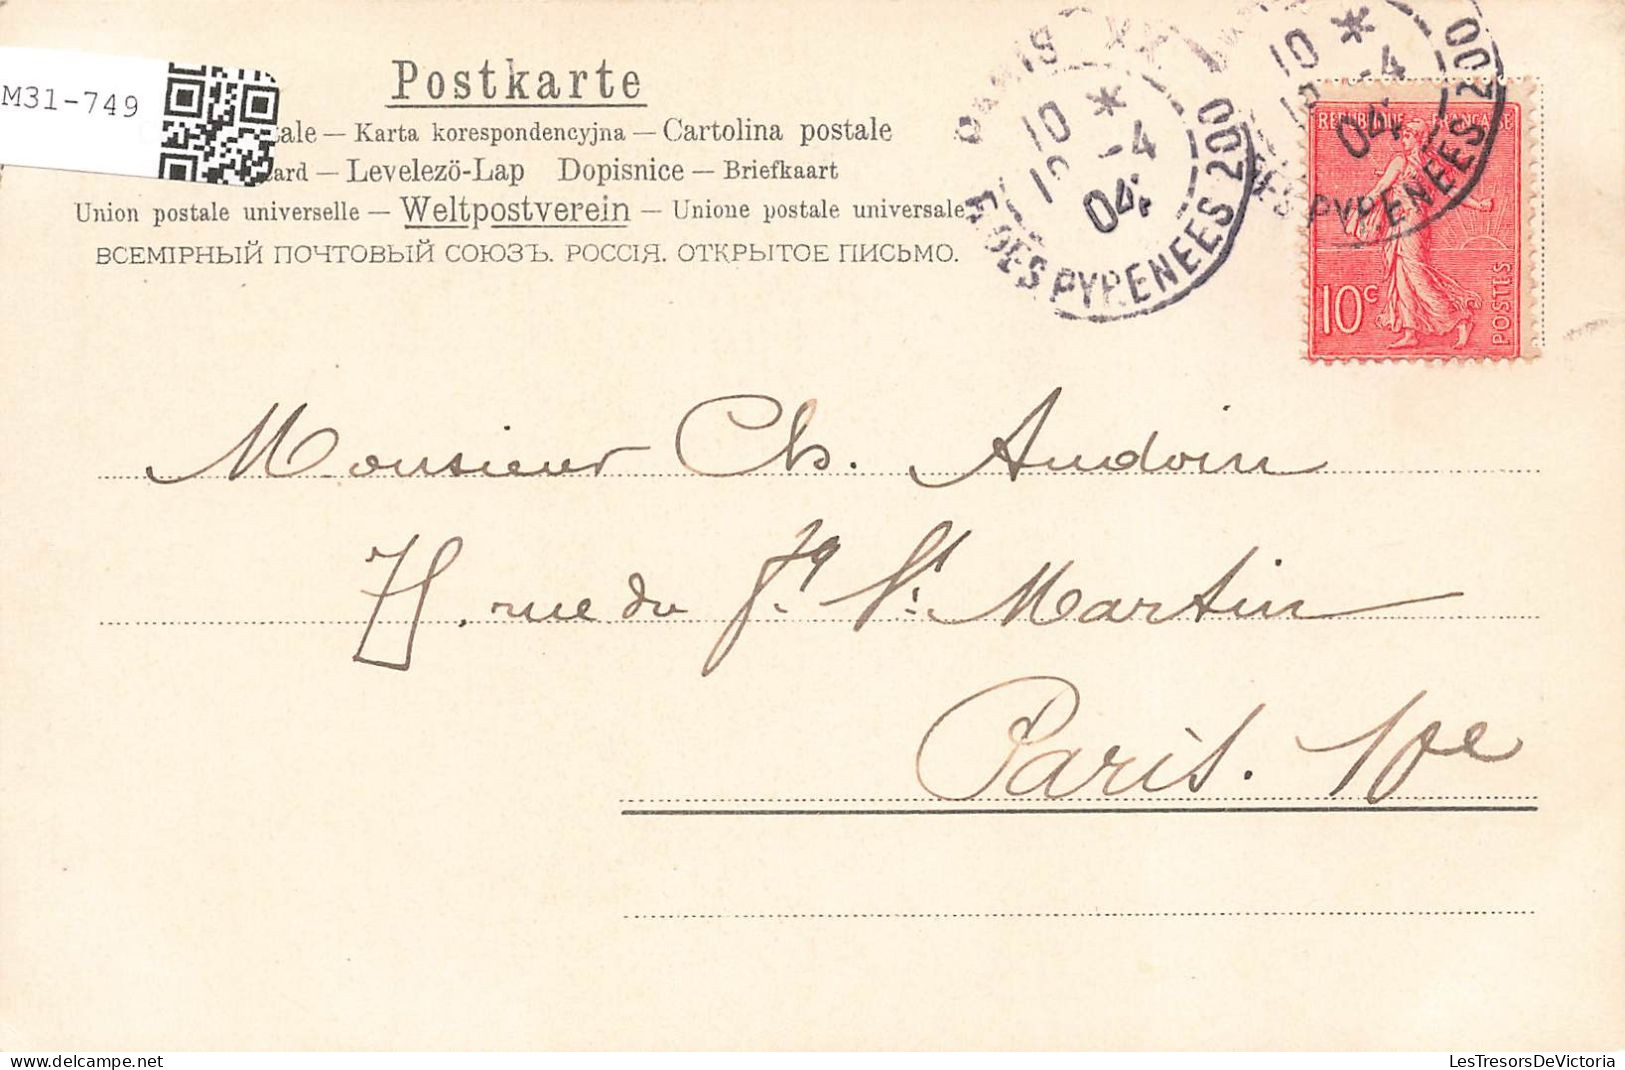 Postkarte
M31-749
ale — Karta korespondencyjna — Cartolina postale
ard — Levelezö-Lap Dopisnice — Briefkaart
Union postale universelle — Weltpostverein — Unione postale universale.
ВСЕМІРНЫЙ ПОЧТОВЫЙ СОЮЗЪ. РОССІЯ. ОТКРЫТОЕ ПИСЬМО.
PARIS XX
10 *
-4
04
R. DES PYRENEES 200
10 *
-4
04
PYRENEES 200
REPUBLIQUE FRANÇAISE
10c
POSTES
Monsieur Ch. Audoin
rue du Fg St Martin
Paris. Xe
LesTresorsDeVictoria